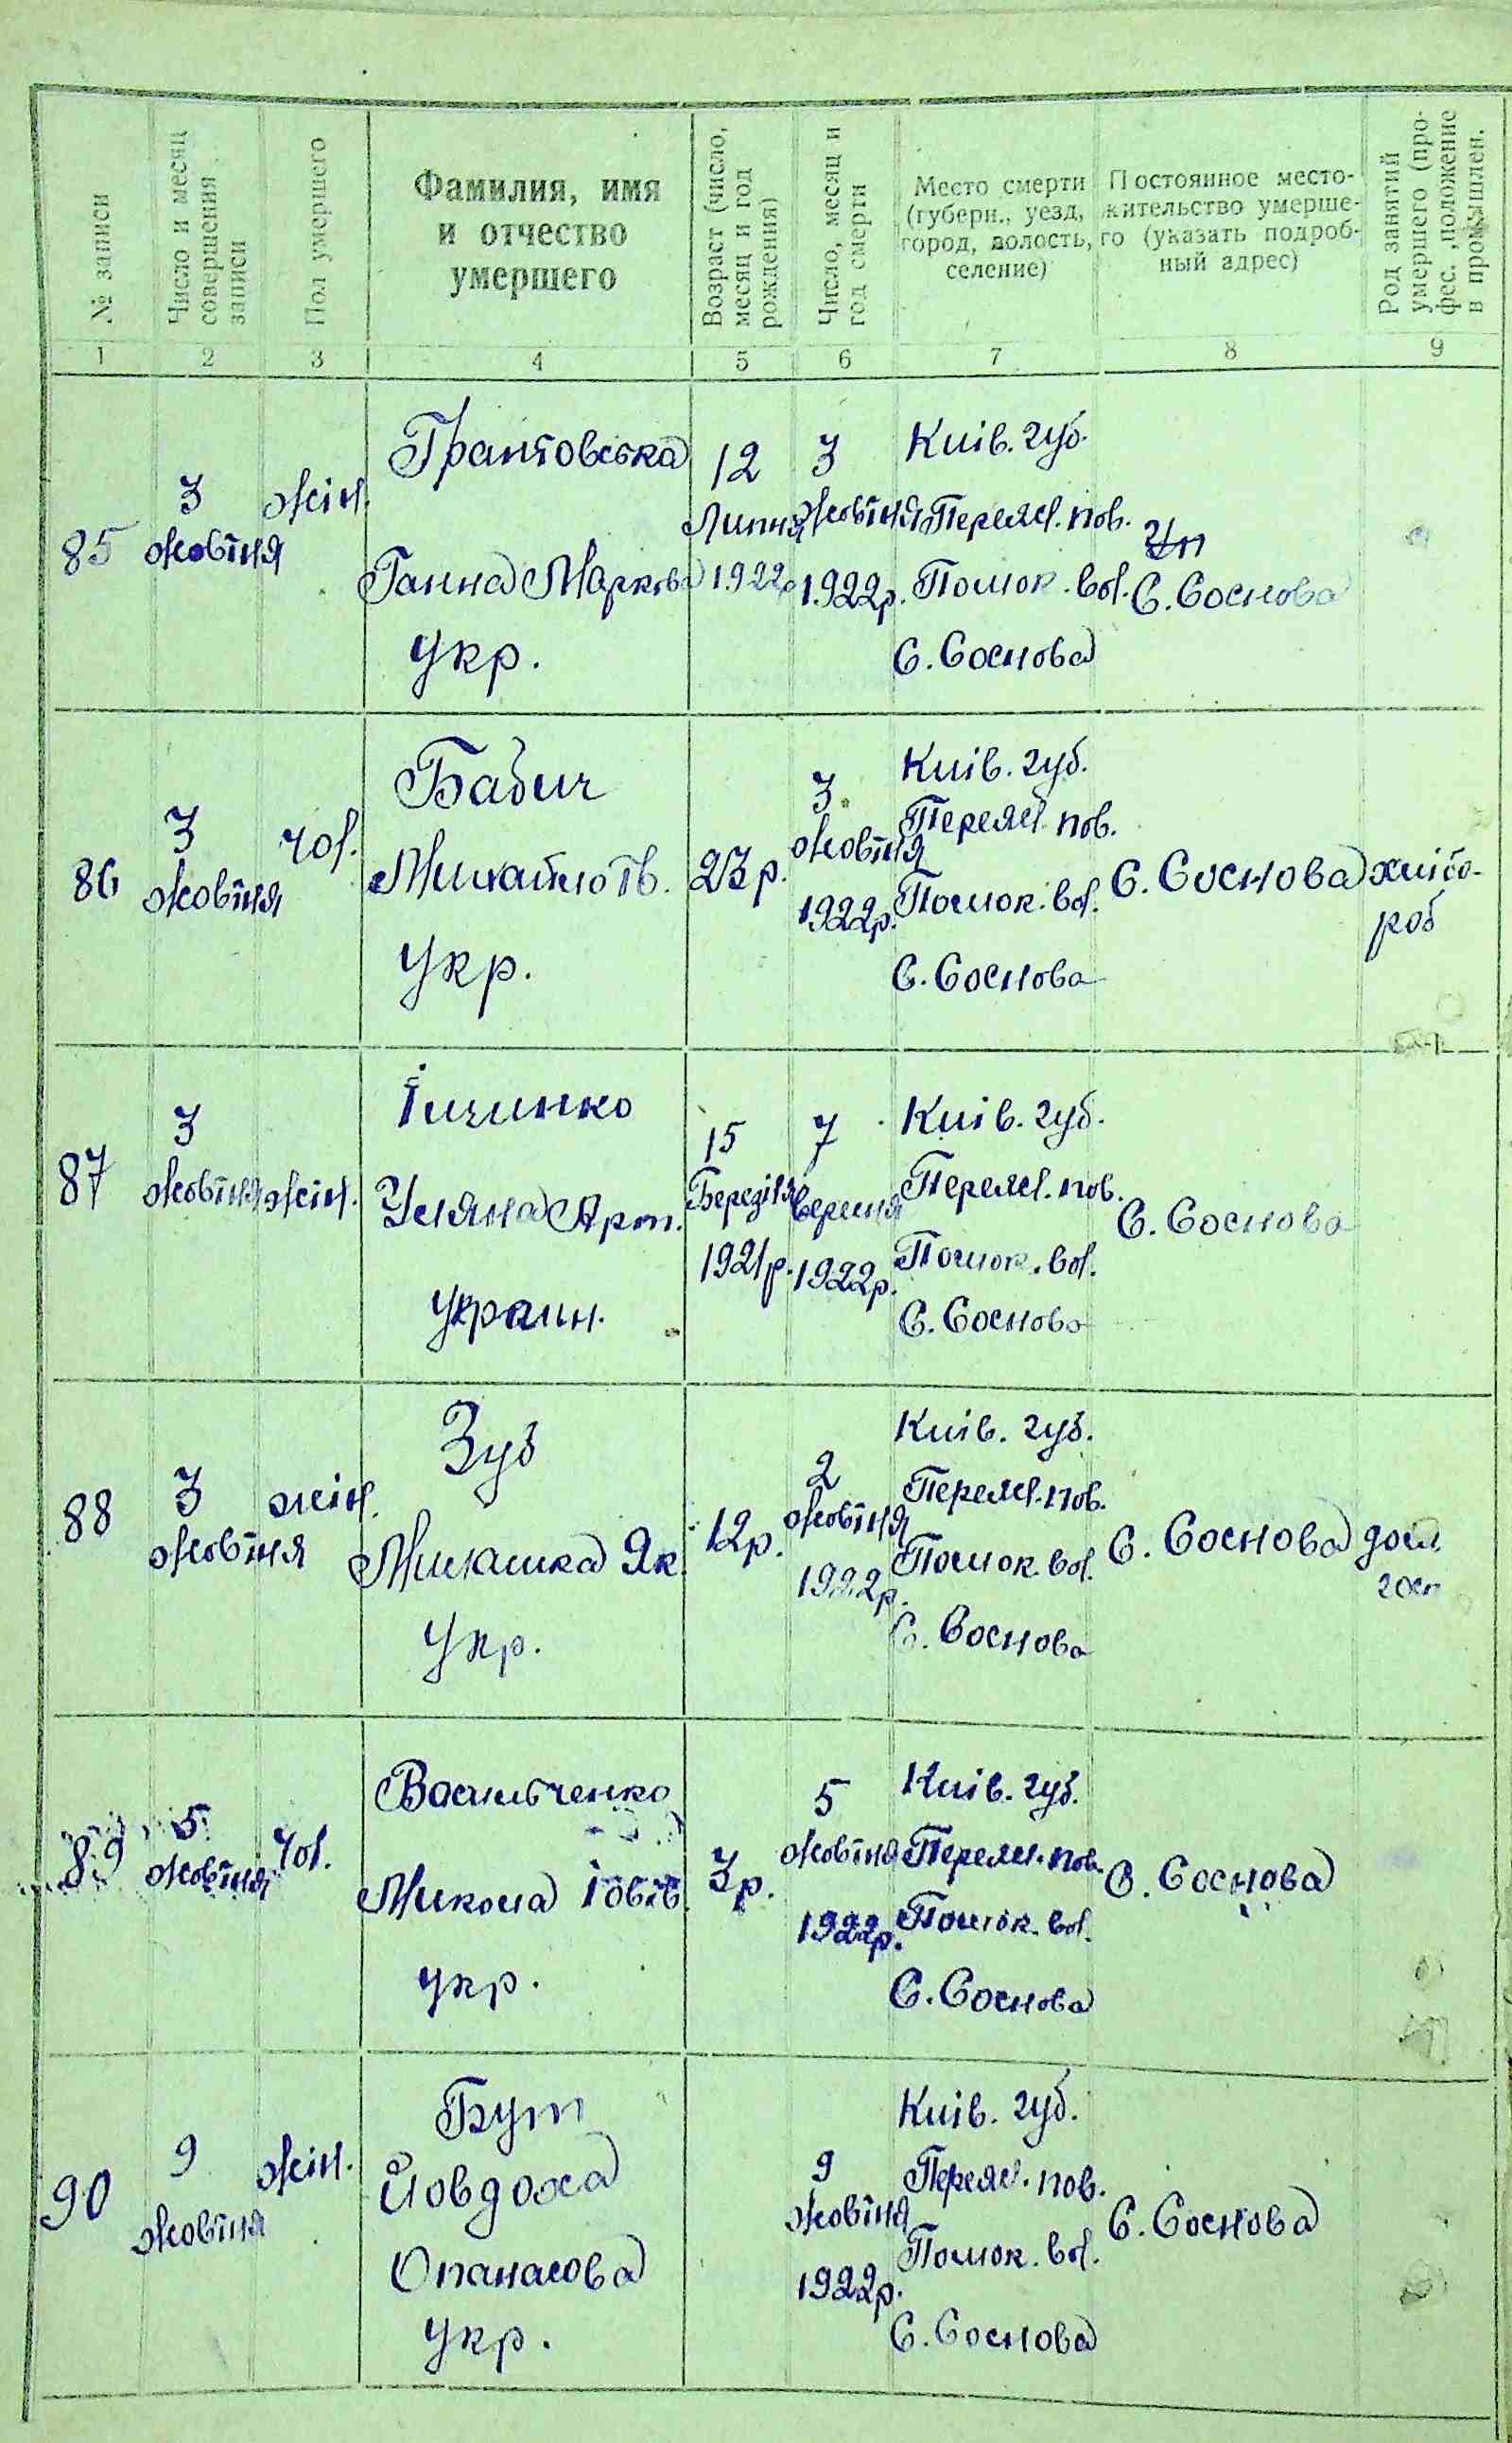 № записи
Число и месяц
совершения
записи
Пол умершего
Фамилия, имя
и отчество
умершего
Возраст (число,
месяц и год
рождения)
Число, месяц и
год смерти
Место смерти
(губерн., уезд,
город, волость,
селение)
Постоянное место-
жительство умерше-
го (указать подроб-
ный адрес)
Род занятий
умершего (про-
фес., положение
в промышлен.
1 2 3 4 5 6 7 8 9
85
3
жовтня
жін.
Ганна Марков
укр.
12
Липня
1922р
3
жовтня
1922р.
Київ. губ.
Переясл. пов.
Помок. вол.
С. Соснова
С. Соснова
86
3
жовтня
чол.
Бабич
Михайло Ів.
укр.
23 р.
3
жовтня
1922р.
Київ. губ.
Переясл. пов.
Помок. вол.
С. Соснова
С. Соснова
хлібо-
роб
87
3
жовтня
жін.
Уляна Арт.
україн.
15
Березіля
1921р.
7
вересня
1922р.
Київ. губ.
Переясл. пов.
Помок. вол.
С. Соснова
С. Соснова
88
3
жовтня
жін.
Зуб
Милашка Як.
укр.
12р.
2
жовтня
1922р.
Київ. губ.
Переясл. пов.
Помок. вол.
С. Соснова
С. Соснова
дом.
госп
89
5
жовтня
чол.
Васильченко
Микола Іовів.
укр.
3р.
5
жовтня
1922р.
Київ. губ.
Переясл. пов.
Помок. вол.
С. Соснова
С. Соснова
90
9
жовтня
жін.
Бут
Йовдоха
Опанасова
укр.
9
жовтня
1922р.
Київ. губ.
Переясл. пов.
Помок. вол.
С. Соснова
С. Соснова